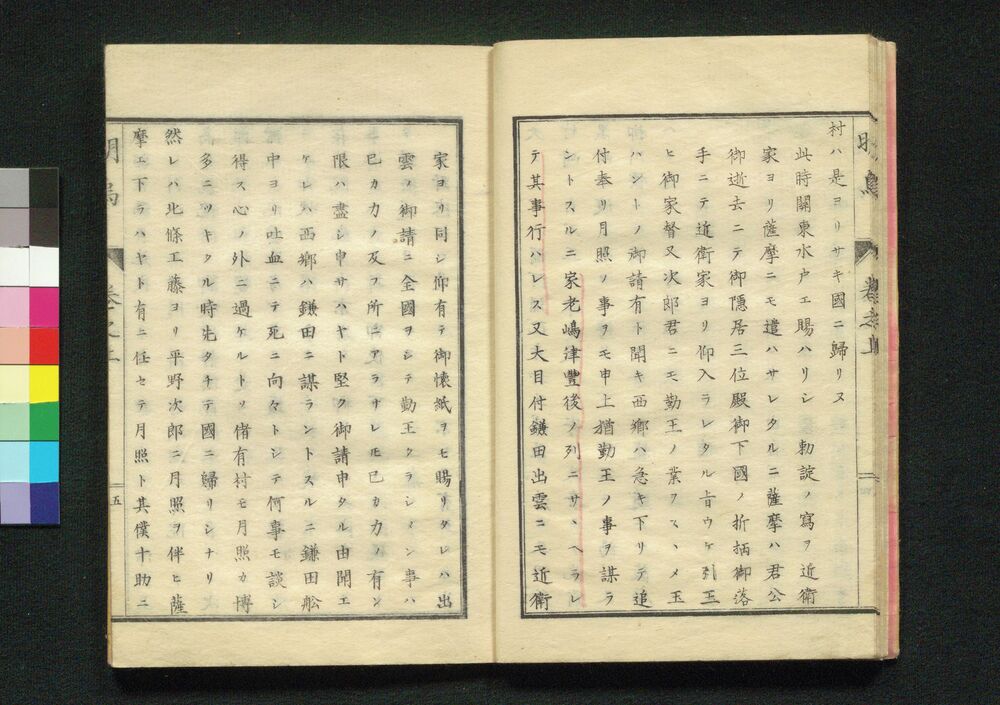 村ハ是ヨリサキ國ニ歸リヌ
此時關東水戸エ賜ハリシ 勅諚ノ寫ヲ近衛
家ヨリ薩摩ニモ遣ハサレタルニ薩摩ハ君公
御逝去ニテ御隠居三位殿御下國ノ折柄御落
手ニテ近衛家ヨリ仰入ラレタル旨ウケ引玉
ヒ御家督又次郎君ニモ勤王ノ業ヲスヽメ玉
ハントノ御請有ト聞キ西郷ハ急キ下リテ追
付奉リ月照ノ事ヲモ申上猶勤王ノ事ヲ謀ラ
ントスルニ家老嶋津豐後ノ列ニサヽヘラレ
テ其事行ハレス又大目付鎌田出雲ニモ近衛
家ヨリ同シ仰有テ御懐紙ヲモ賜リタレハ出
雲ノ御請ニ全國ヲシテ勤王タラシメン事ハ
已カカノ及フ所ニアラサレ𪜈已カカノ有ン
限ハ盡シ申サハヤト堅ク御請申タル由聞エ
ケレハ西郷ハ鎌田ニ謀ラントスルニ鎌田舩
中ヨリ吐血ニテ死ニ向々トシテ何事モ談シ
得ス心ノ外ニ過ケルトソ偖有村モ月照カ博
多ニツキタル時先タチテ國ニ歸リシナリ
然レハ北條工藤ヨリ平野次郎ニ月照ヲ伴ヒ薩
摩エ下ラハヤト有ニ任セテ月照ト其僕十助ニ
五